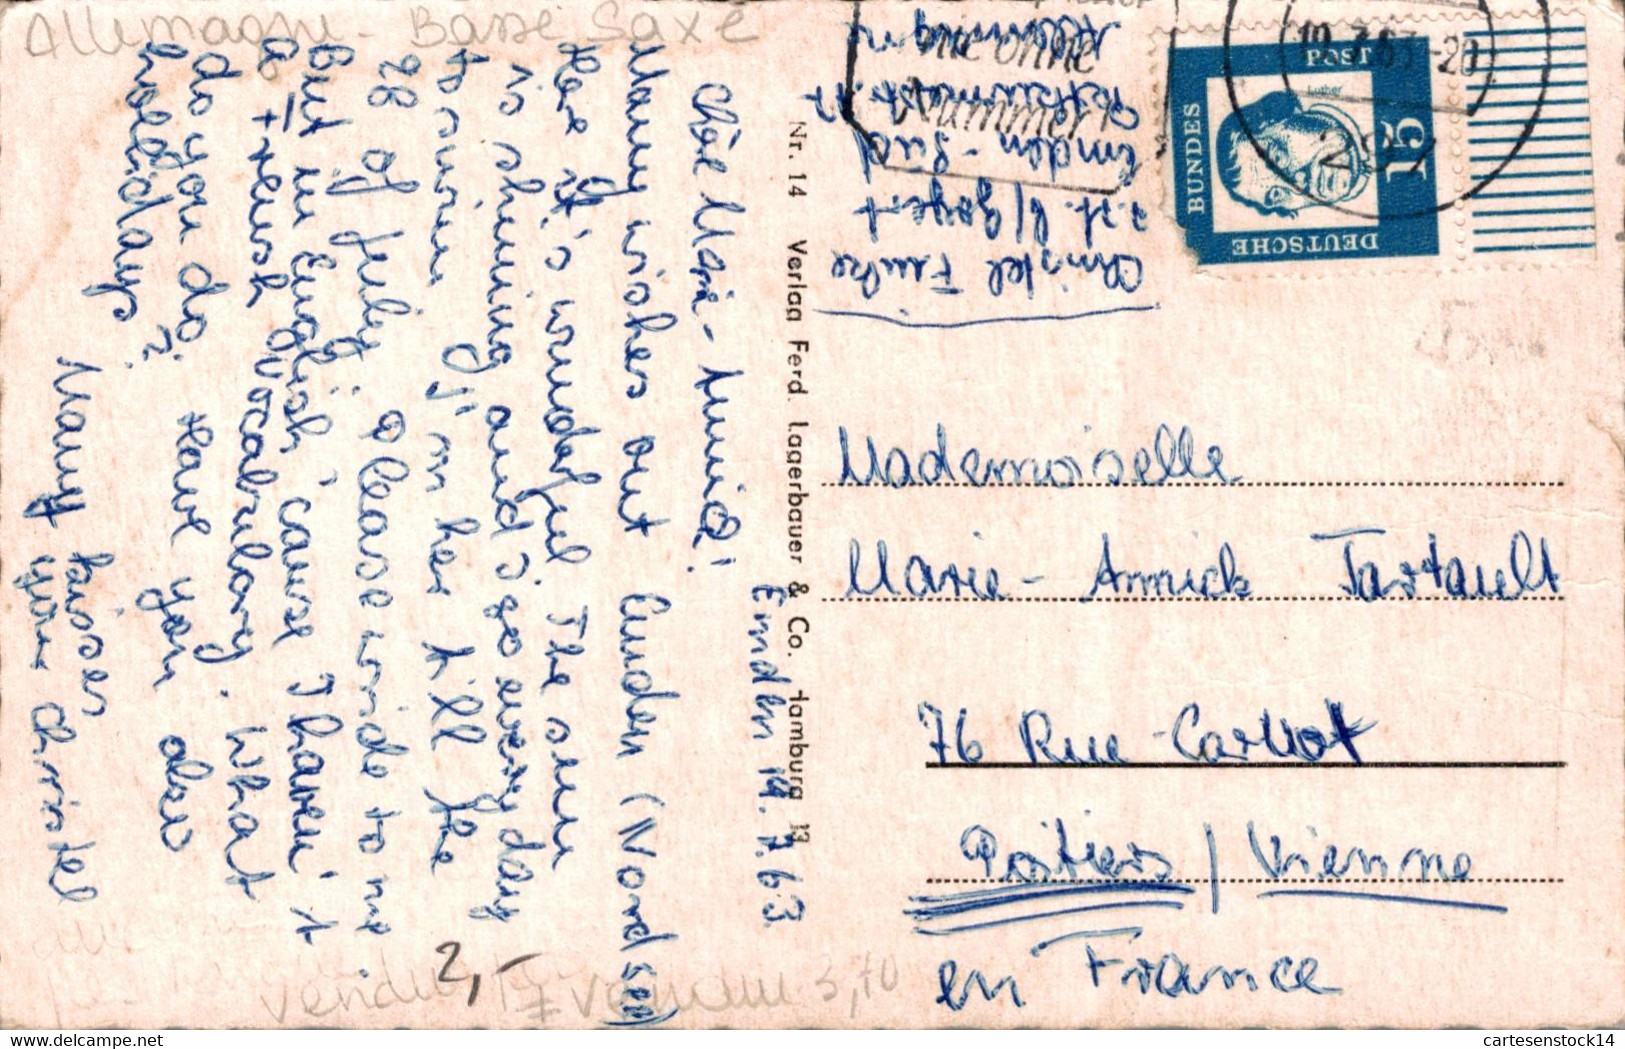 Allemagne - Basse Saxe
Emden 19.7.63
Chère Marie-Annick!
Many wishes out Emden (Nordsee)
Here it's wonderful. The sun
is shining and I go every day
to swim. I'm her till the
28 of July. Please wride to me.
But in English 'cause I haven't
a french vocabulary. What
do you do. Have you also
holidays?
Many kisses
your Christel
2,-
Nr. 14 Verlag Ferd. Lagerbauer & Co. Hamburg 13
Christel
z.Zt. b/Goyert
Emden-Süd
nie ohne
Nummer
DEUTSCHE
BUNDES
POST
Luther
15
297
Mademoiselle
Marie-Annick Tartault
76 Rue Carnot
Poitiers / Vienne
en France
www.delcampe.net
cartesenstock14